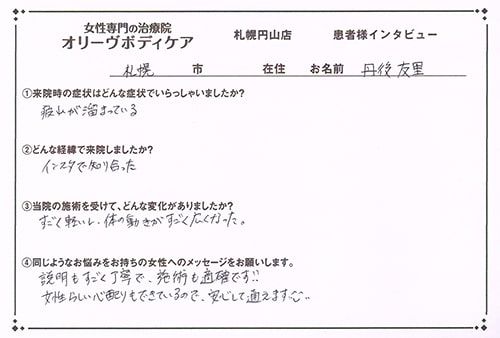 女性専門の治療院
オリーヴボディケア 札幌円山店 患者様インタビュー
札幌 市 在住 お名前 丹後 友里
①来院時の症状はどんな症状でいらっしゃいましたか?
疲れが溜まっている
②どんな経緯で来院しましたか?
インスタで知り合った
③当院の施術を受けて、どんな変化がありましたか?
すごく軽いし、体の動きがすごく広くなった。
④同じようなお悩みをお持ちの女性へのメッセージをお願いします。
説明もすごく丁寧で、施術も適確です!!
女性らしい心配りもできているので、安心して通えます